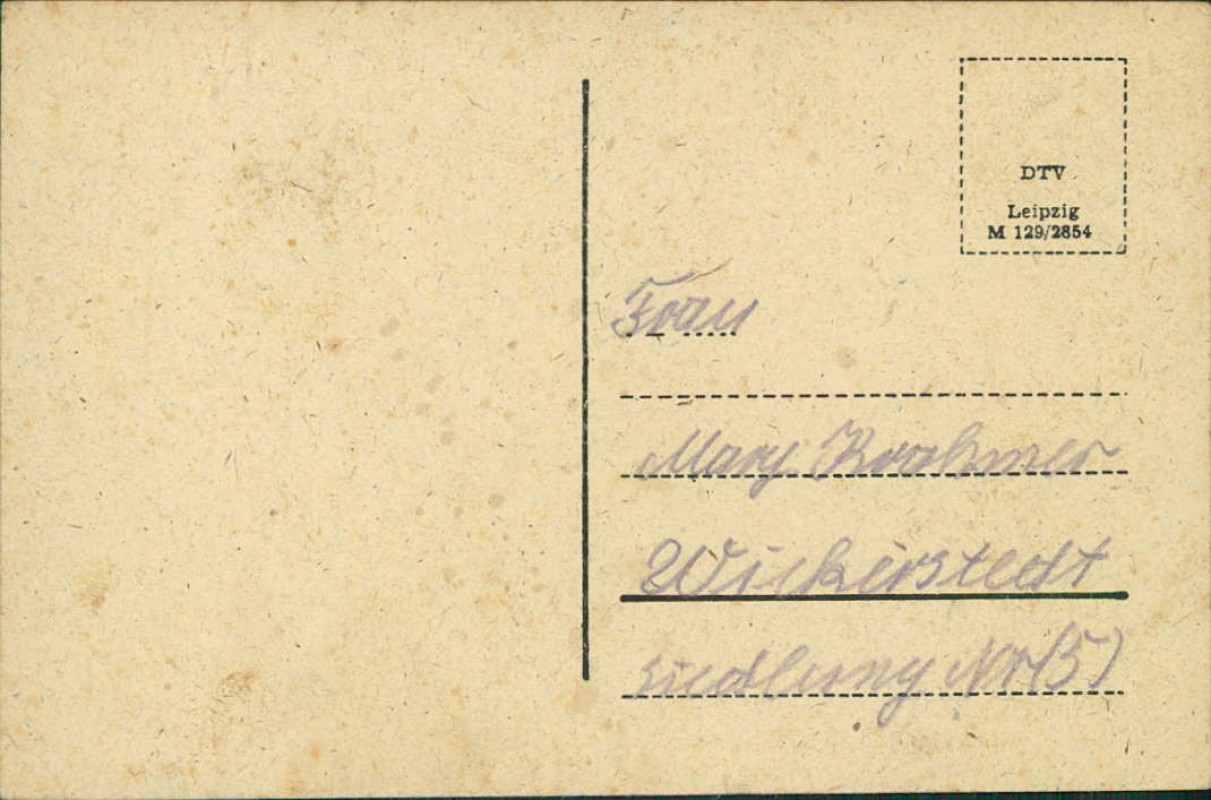 DTV
Leipzig
M 129/2854
Frau
Mary Krahmer
Wickerstedt
Siedlung Nr (5)